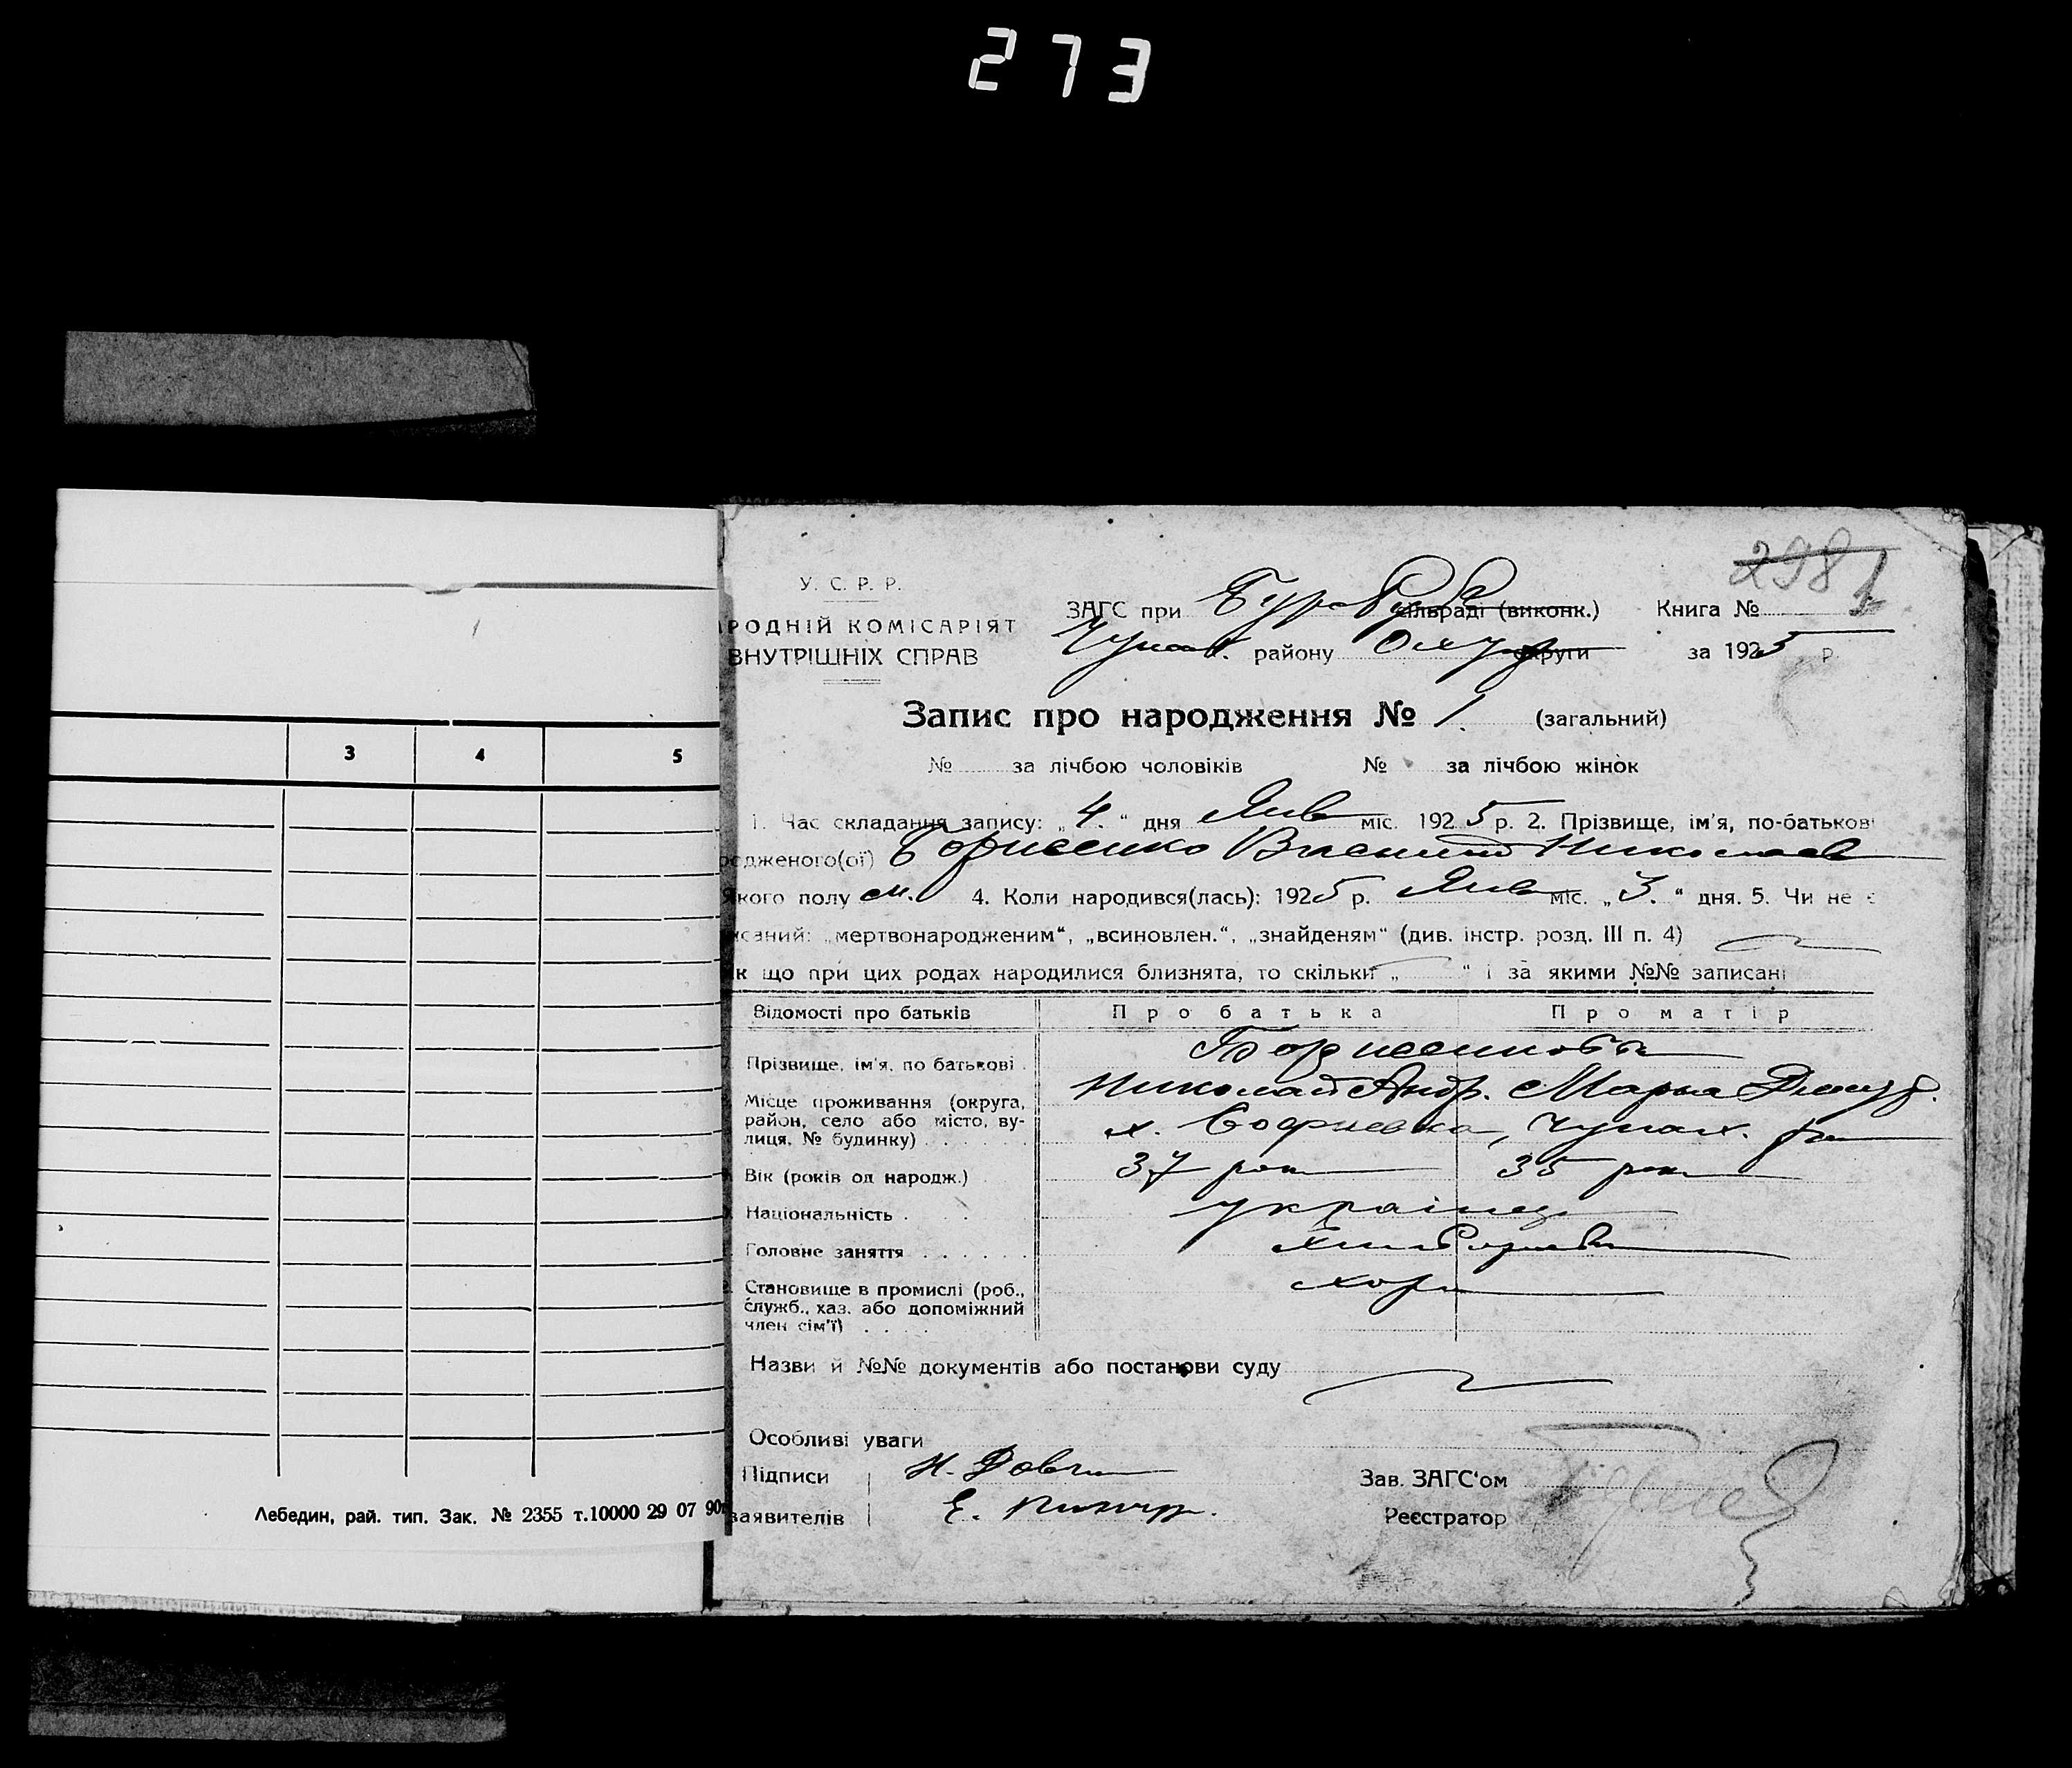 273
3 4 5
Лебедин, рай. тип. Зак. № 2355 т.10000 29 07 90
298 1
У. С. Р. Р.
РОДНІЙ КОМІСАРІЯТ
ВНУТРІШНІХ СПРАВ
ЗАГС при сільраді (виконк.) Книга №
Чупах. району Охтр округи за 1925 р.
Запис про народження № 1. (загальний)
№ за лічбою чоловіків № за лічбою жінок
1. Час складання запису: „4.“ дня Янв міс. 1925 р. 2. Прізвище, ім'я, по-батькові
одженого(ої) Борисенко Василий Николаев
Якого полу м. 4. Коли народився(лась): 1925 р. Янв міс. „3.“ дня. 5. Чи не є
исаний: „мертвонародженим“, „всиновлен.“, „знайденям“ (див. інстр. розд. III п. 4)
к що при цих родах народилися близнята, то скільки „ “ і за якими №№ записані
Відомості про батьків Про батька Про матір
Прізвище, ім'я, по батькові Борисенков
Николай Андр. Марья
Місце проживання (округа, район, село або місто, вулиця, № будинку) х. Софиевка, Чупах. р
Вік (років од народж.) 37 рок 35 рок
Національність українц
Головне заняття Хлибороб
Становище в промислі (роб., служб., хаз. або допоміжний член сім'ї)
Назви й №№ документів або постанови суду
Особливі уваги
Підписи Н. Довг
заявителів Є.
Зав. ЗАГС'ом
Реєстратор